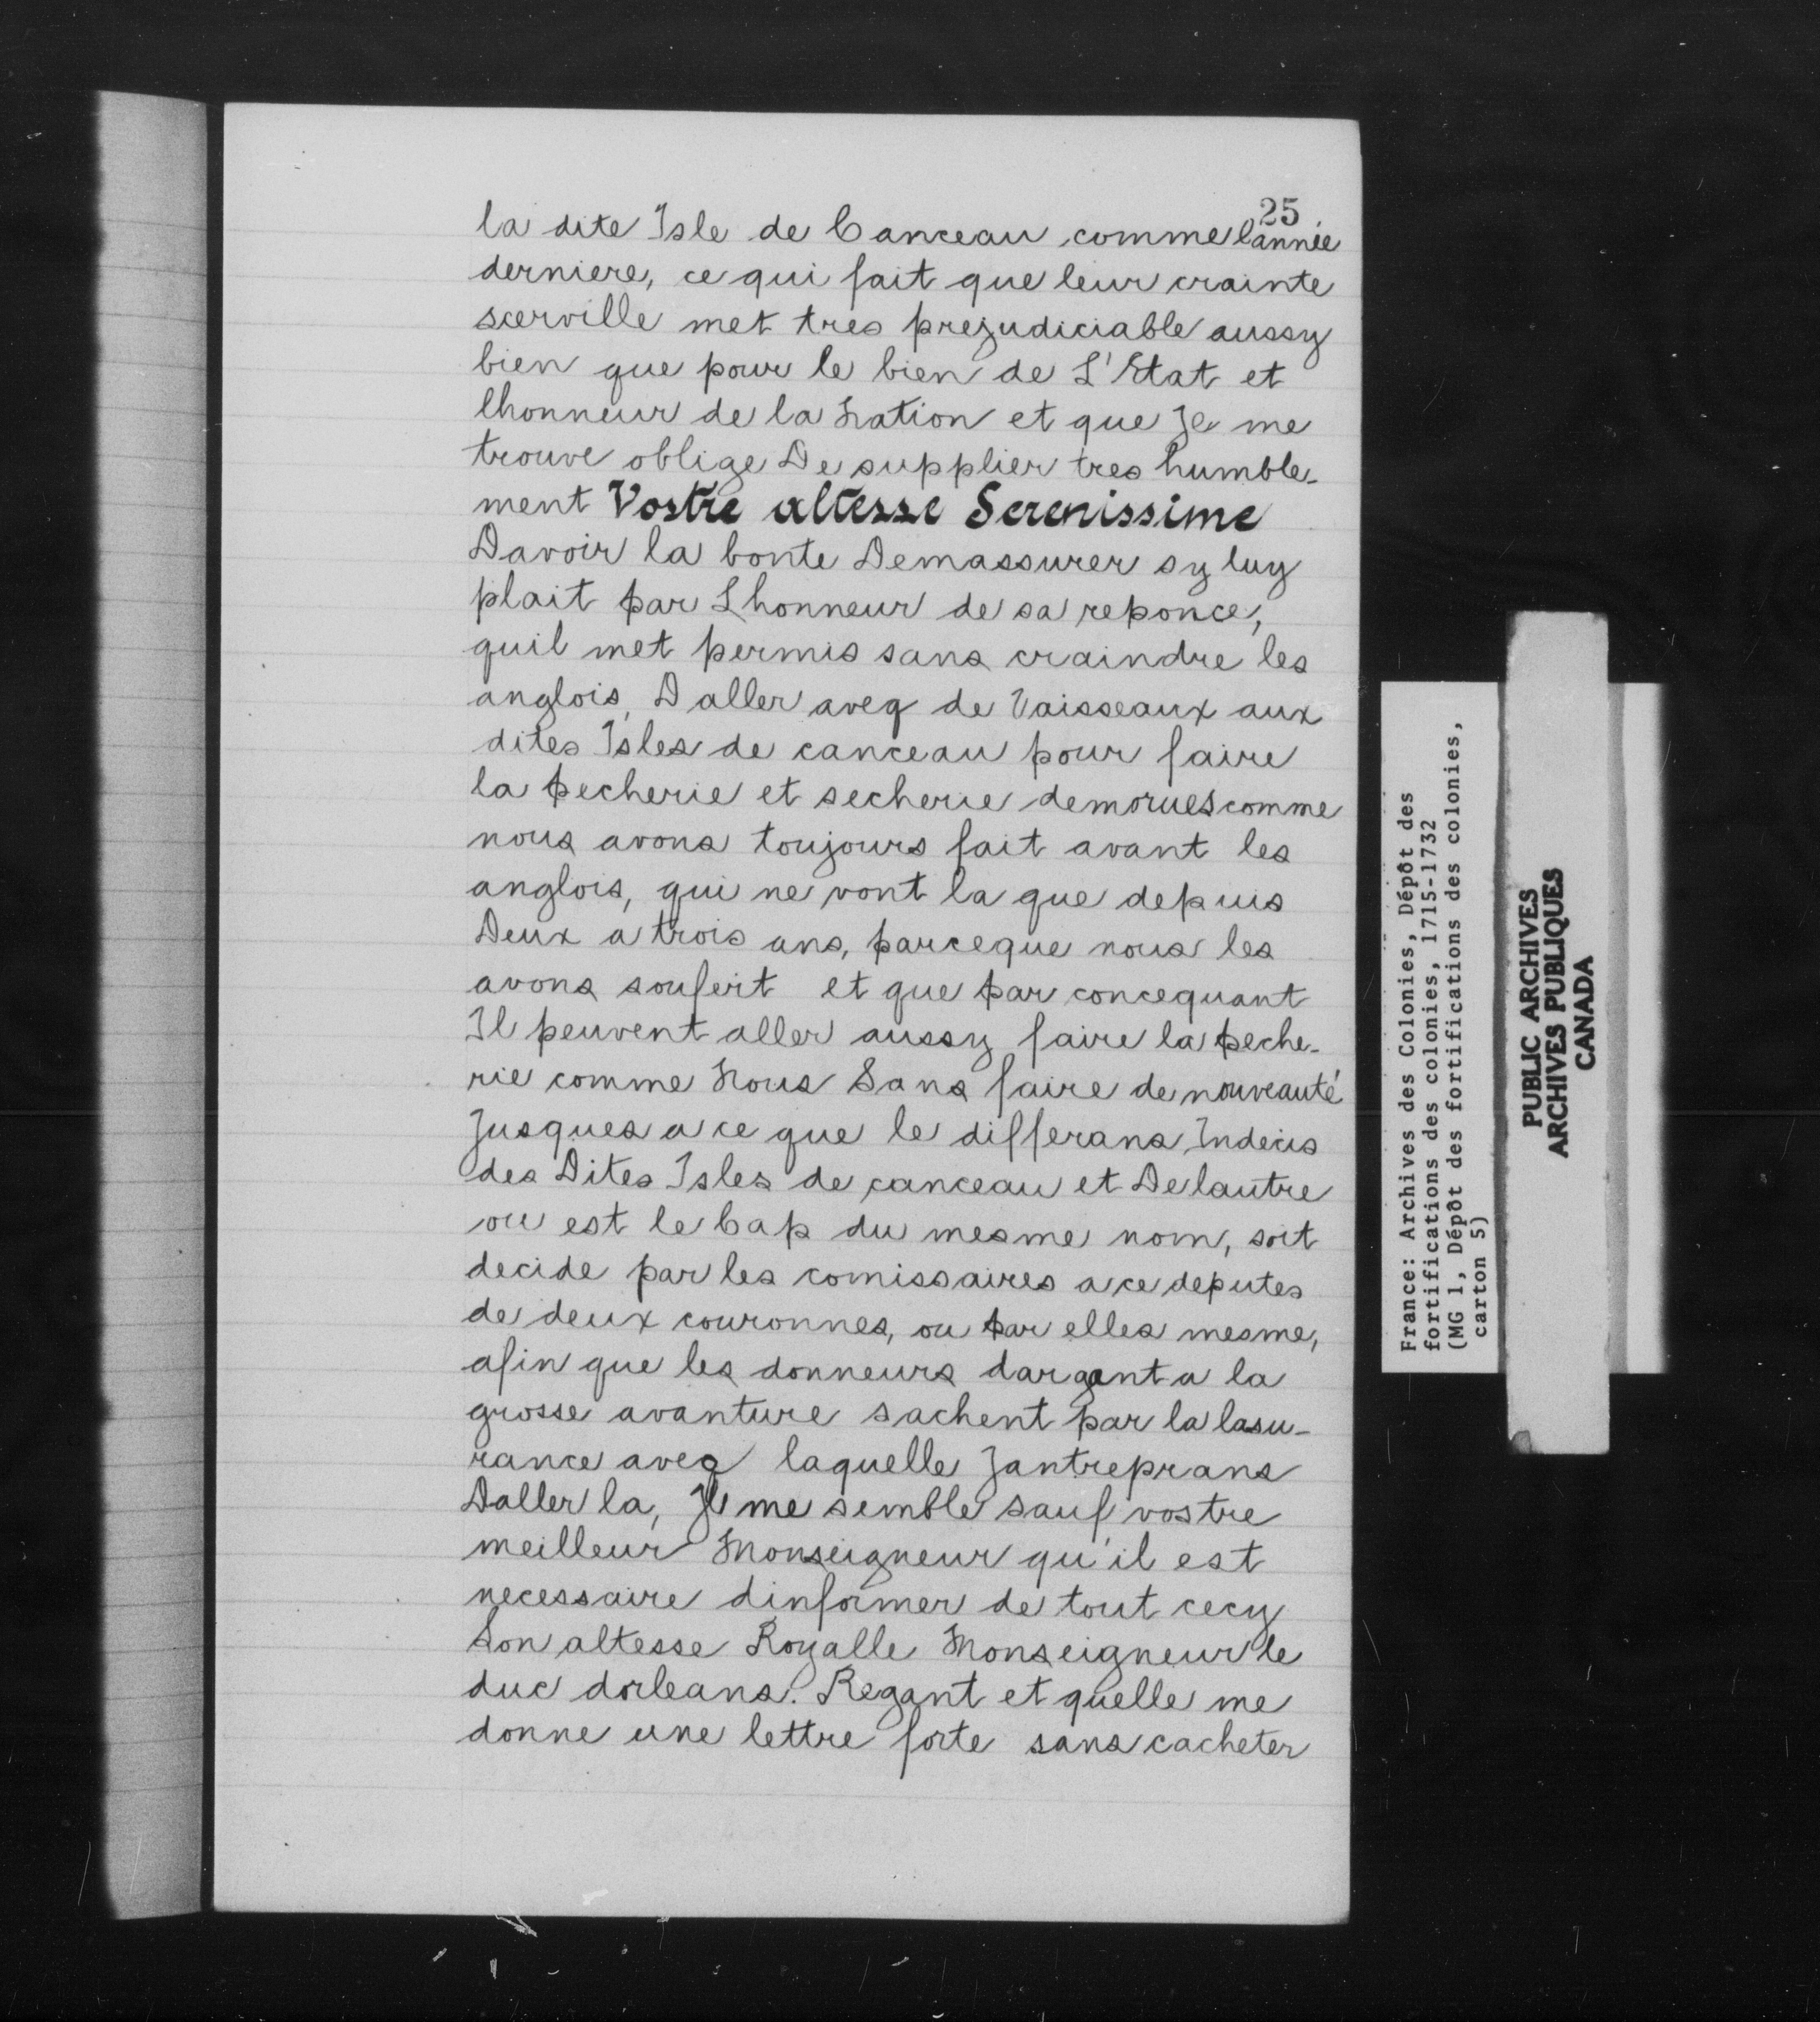 25
la dite Isle de Canceau comme lannée
derniere, ce qui fait que leur crainte
scerville met tres prejudiciable aussy
bien que pour le bien de L'Etat et
lhonneur de la Nation et que Je me
trouve oblige De supplier tres humble-
ment Vostre altesse Serenissime
Davoir la bonte Demassurer sy luy
plait par Lhonneur de sa reponce,
quil met permis sans craindre les
anglois, Daller aveq de Vaisseaux aux
dites Isles de canceau pour faire
la pecherie et secherie demorues comme
nous avons toujours fait avant les
anglois, qui ne vont la que depuis
Deux a trois ans, parceque nous les
avons soufert et que par concequant
Il peuvent aller aussy faire la peche-
rie comme Nous Sans faire de nouveauté
Jusques a ce que le differans Indecis
des Dites Isles de canceau et Delautre
ou est le Cap du mesme nom, soit
decide par les comissaires a ce deputes
de deux couronnes, ou par elles mesme,
afin que les donneurs dargant a la
grosse avanture sachent par la lasu-
rance aveq laquelle Jantreprans
Daller la, Il me semble sauf vostre
meilleur Monseigneur qu'il est
necessaire dinformer de tout cecy
Son altesse Royalle Monseigneur le
duc dorleans. Regant et quelle me
donne une lettre forte sans cacheter
France: Archives des Colonies, Dépôt des
fortifications des colonies, 1715-1732
(MG 1, Dépôt des fortifications des colonies,
carton 5)
PUBLIC ARCHIVES
ARCHIVES PUBLIQUES
CANADA